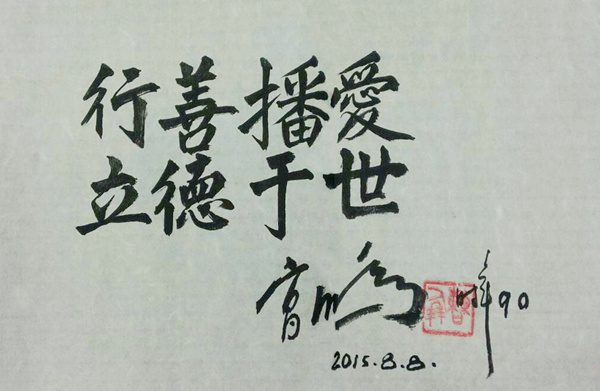 行善播愛
立德于世
时年90
2015.8.8.